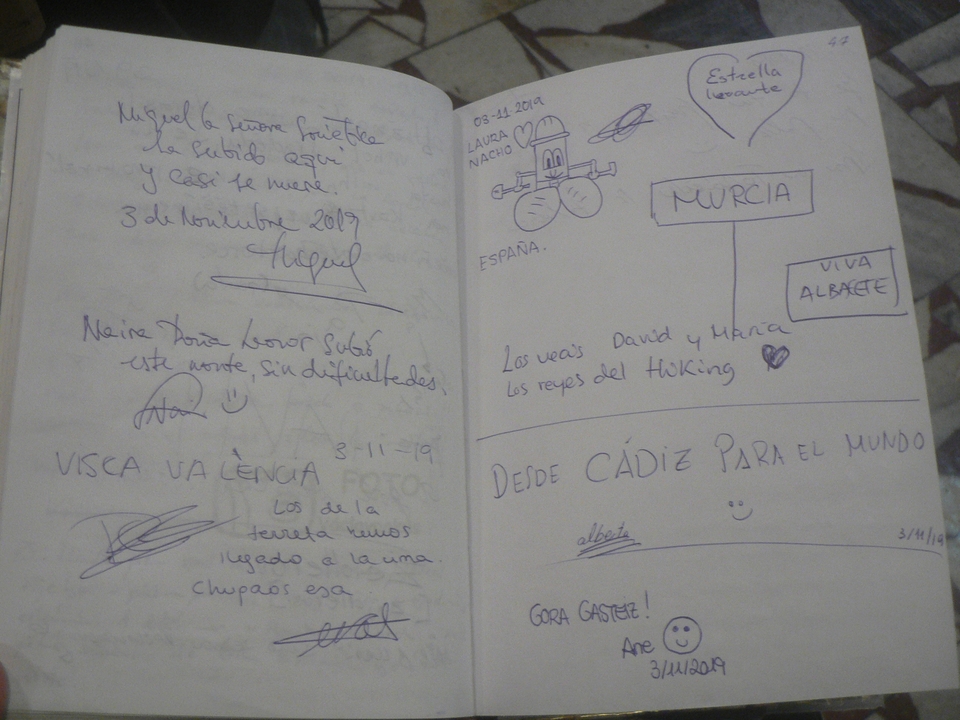 Miguel la señora Soviética
ha subido aquí
y casi se muere.
3 de Noviembre 2019
Miguel
Naira Doña Leonor subió
este monte, sin dificultades.
Nai
3-11-19
VISCA VALÈNCIA
Los de la
terreta hemos
llegado a la cima
chupaos esa
47
03-11-2019
LAURA
NACHO
ESPAÑA.
Estrella
levante
MURCIA
VIVA
ALBACETE
Los David y María
Los reyes del Hiking
DESDE CÁDIZ PARA EL MUNDO
alberto
3/11/19
GORA GASTEIZ!
Ane
3/11/2019